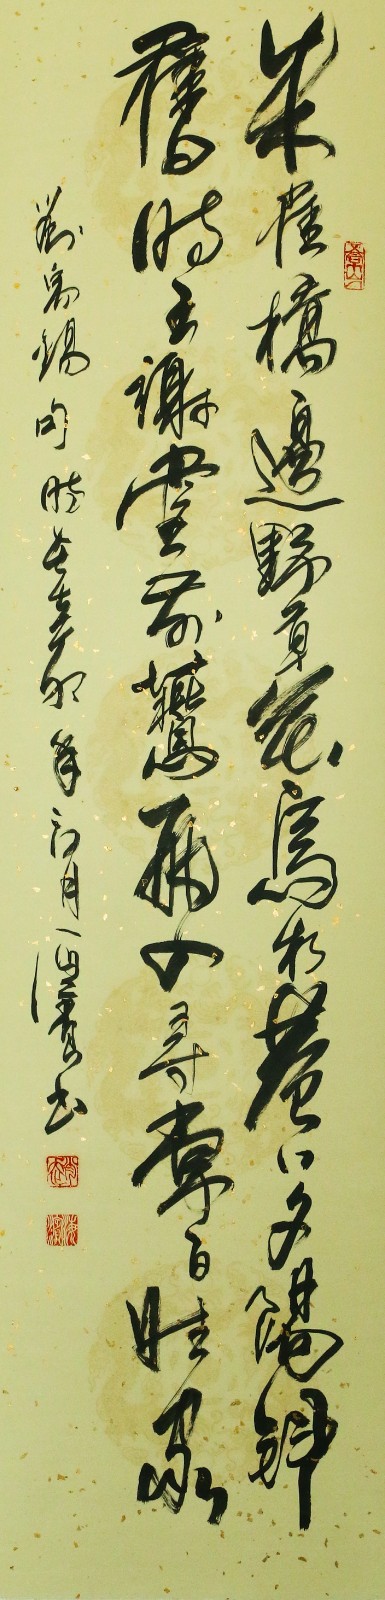 朱雀橋邊野草花烏衣巷口夕陽斜
舊時王謝堂前燕飛入尋常百姓家
劉禹錫句時在辛卯年月海濱書
海濱